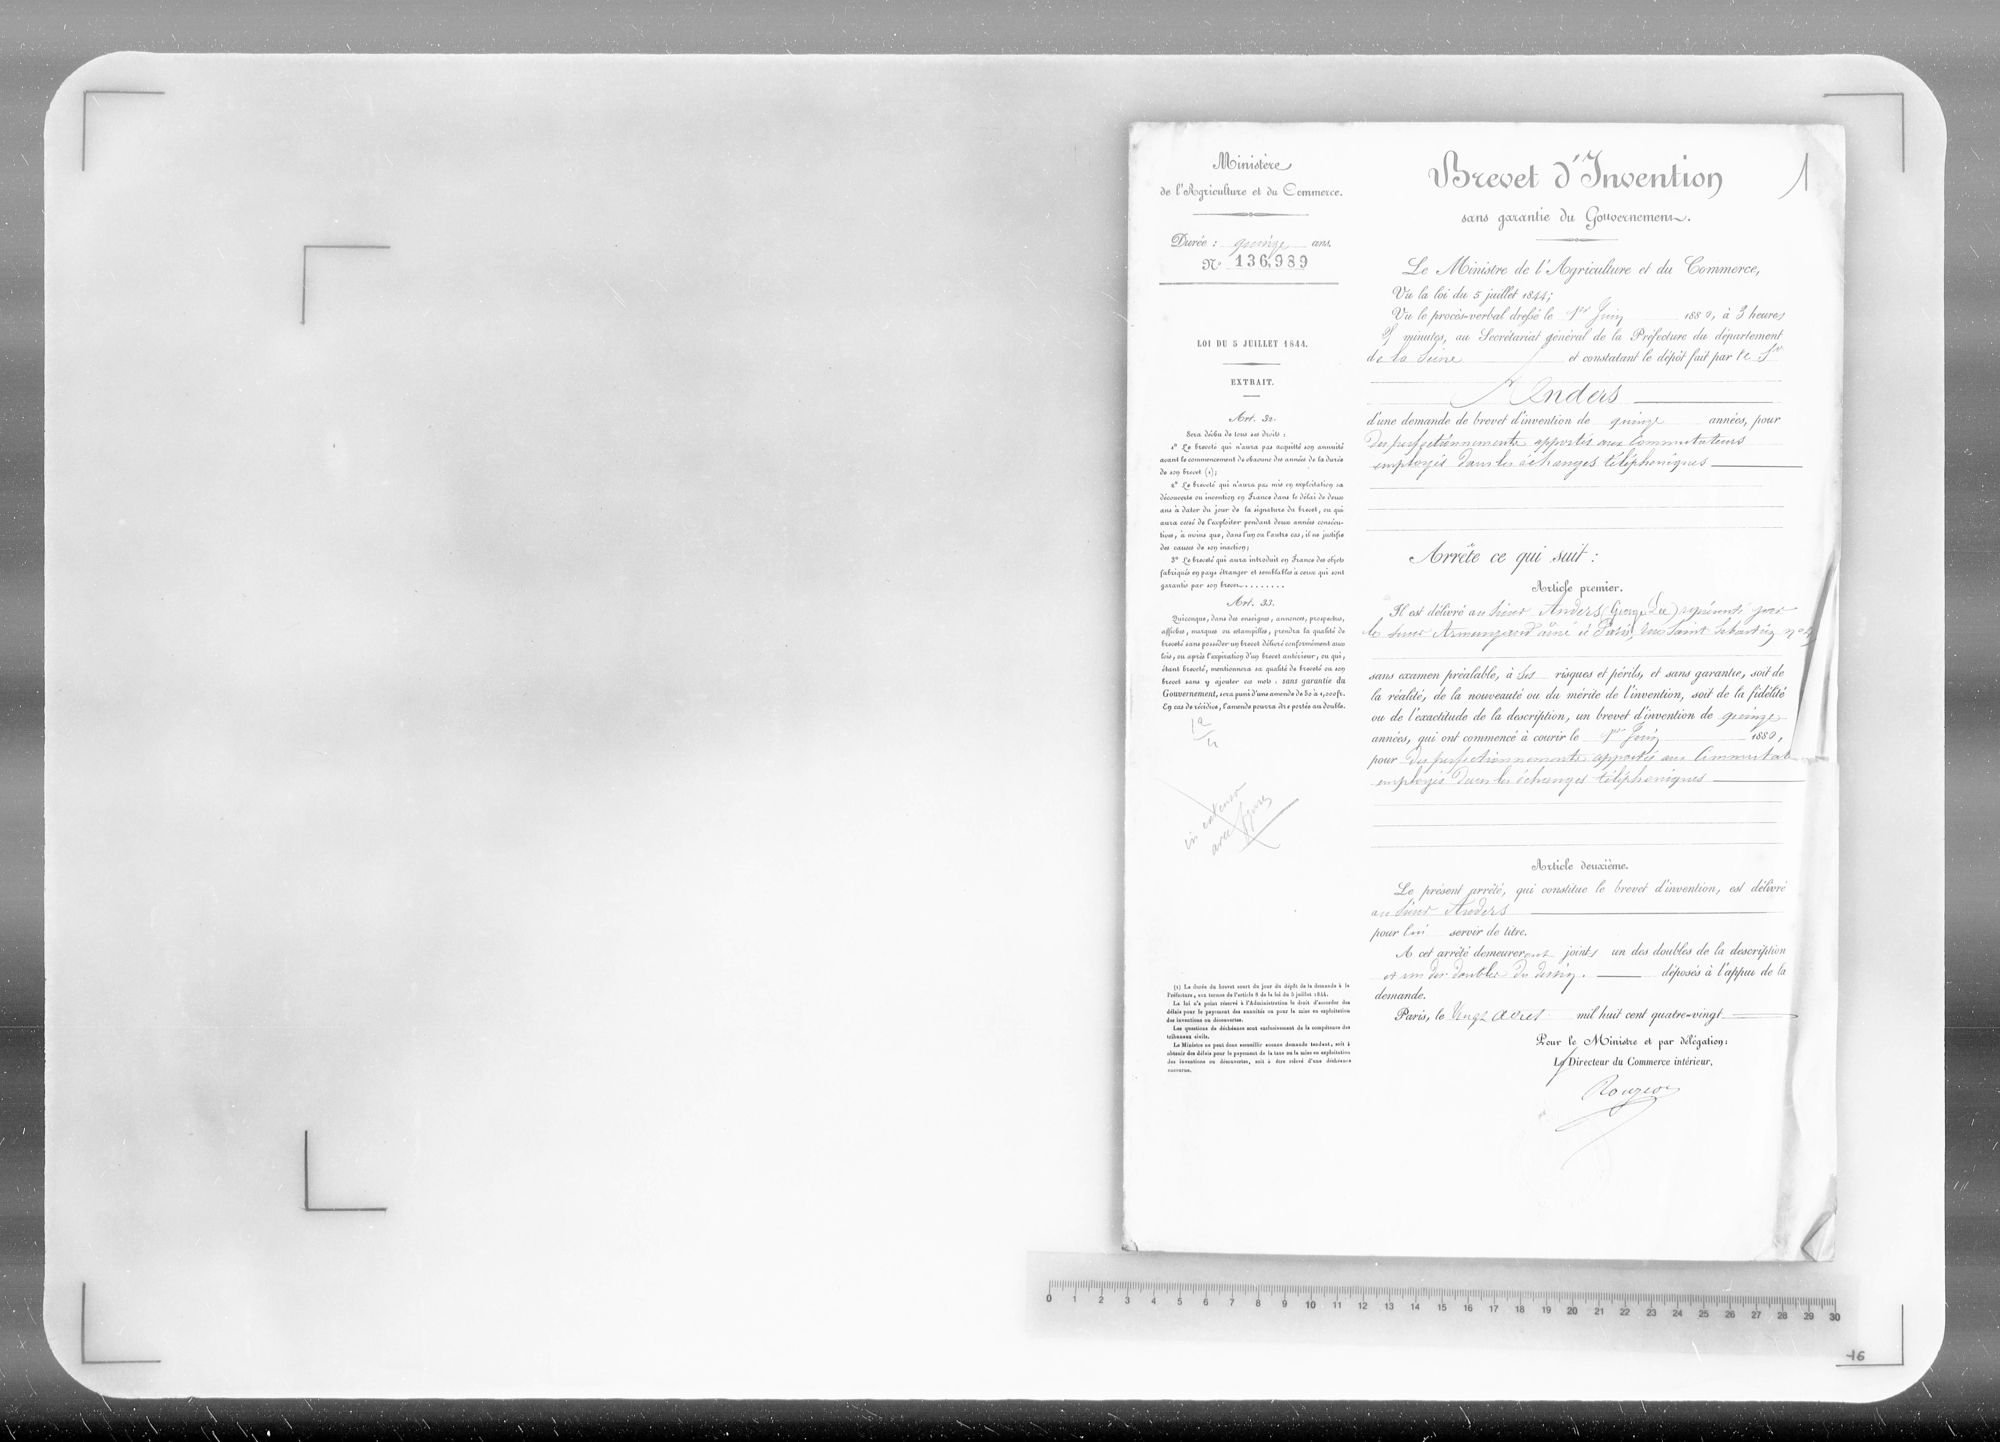 Ministère
de l'Agriculture et du Commerce.
Durée : quinze ans.
N° 136,989
LOI DU 5 JUILLET 1844.
EXTRAIT.
Art. 32.
Sera déchu de tous ses droits :
1° Le breveté qui n'aura pas acquitté son annuité
avant le commencement de chacune des années de la durée
de son brevet (1);
2° Le breveté qui n'aura pas mis en exploitation sa
découverte ou invention en France dans le délai de deux
ans à dater du jour de la signature du brevet, ou qui
aura cessé de l'exploiter pendant deux années consécu-
tives, à moins que, dans l'un ou l'autre cas, il ne justifie
des causes de son inaction;
3° Le breveté qui aura introduit en France des objets
fabriqués en pays étranger et semblables à ceux qui sont
garantis par son brevet........
Art. 33.
Quiconque, dans des enseignes, annonces, prospectus,
affiches, marques ou estampilles, prendra la qualité de
breveté sans posséder un brevet délivré conformément aux
lois, ou après l'expiration d'un brevet antérieur, ou qui,
étant breveté, mentionnera sa qualité de breveté ou son
brevet sans y ajouter ces mots : sans garantie du
Gouvernement, sera puni d'une amende de 50 à 1,000 fr.
En cas de récidive, l'amende pourra être portée au double.
in extenso
avec figures
(1) La durée du brevet court du jour du dépôt de la demande à la
Préfecture, aux termes de l'article 8 de la loi du 5 juillet 1844.
La loi n'a point réservé à l'Administration le droit d'accorder des
délais pour le payement des annuités ou pour la mise en exploitation
des inventions ou découvertes.
Les questions de déchéance sont exclusivement de la compétence des
tribunaux civils.
Le Ministre ne peut donc accueillir aucune demande tendant, soit à
obtenir des délais pour le payement de la taxe ou la mise en exploitation
des inventions ou découvertes, soit à être relevé d'une déchéance
encourue.
Brevet d'Invention
1
sans garantie du Gouvernement.
Le Ministre de l'Agriculture et du Commerce,
Vu la loi du 5 juillet 1844;
Vu le procès-verbal dressé le 1er Juin 1880, à 3 heures
minutes, au Secrétariat général de la Préfecture du département
de la Seine et constatant le dépôt fait par le Sr
Anders
d'une demande de brevet d'invention de quinze années, pour
des perfectionnements apportés aux Commutateurs
employés dans les échanges téléphoniques
Arrête ce qui suit :
Article premier.
Il est délivré au Sieur Anders (George Lee) représenté par
le Sieur Armengaud aîné à Paris, rue Saint Sébastien n° 45
sans examen préalable, à ses risques et périls, et sans garantie, soit de
la réalité, de la nouveauté ou du mérite de l'invention, soit de la fidélité
ou de l'exactitude de la description, un brevet d'invention de quinze
années, qui ont commencé à courir le 1er Juin 1880,
pour des perfectionnements apportés aux Commutat
employés dans les échanges téléphoniques
Article deuxième.
Le présent arrêté, qui constitue le brevet d'invention, est délivré
au Sieur Anders
pour lui servir de titre.
A cet arrêté demeureront joints un des doubles de la description
et un des doubles du dessin. déposés à l'appui de la
demande.
Paris, le Vingt août mil huit cent quatre-vingt
Pour le Ministre et par délégation:
Le Directeur du Commerce intérieur,
0 1 2 3 4 5 6 7 8 9 10 11 12 13 14 15 16 17 18 19 20 21 22 23 24 25 26 27 28 29 30
16